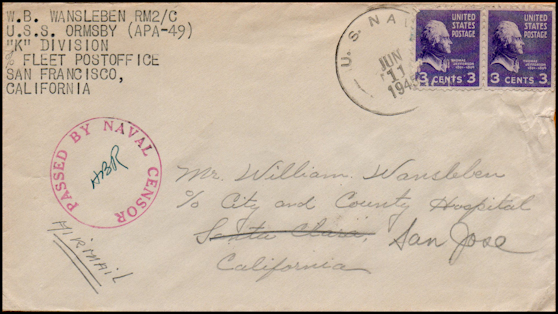 W.B. WANSLEBEN RM2/C
U.S.S. ORMSBY (APA-49)
"K" DIVISION
% FLEET POSTOFFICE
SAN FRANCISCO,
CALIFORNIA
U. S. NA
JUN
11
194
UNITED
STATES
POSTAGE
THOMAS
JEFFERSON
3 CENTS 3
UNITED
STATES
POSTAGE
THOMAS
JEFFERSON
3 CENTS 3
PASSED BY NAVAL CENSOR
AIRMAIL
Mr. William Wansleben
c/o City and County Hospital
Santa Clara, San Jose
California